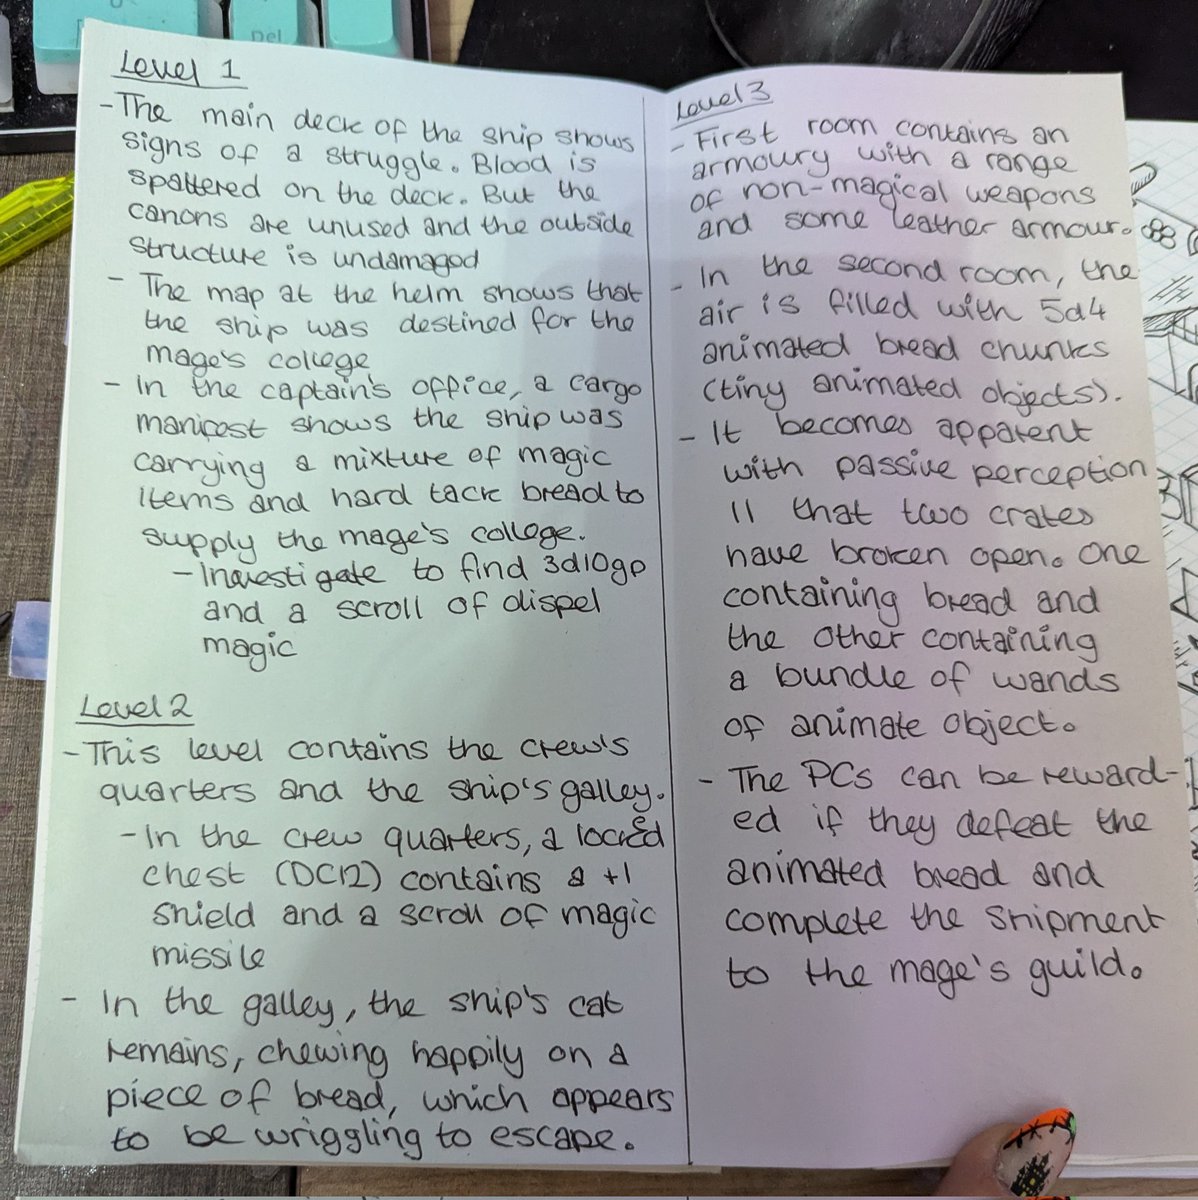 Del
Level 1
- The main deck of the ship shows
signs of a struggle. Blood is
spattered on the deck. But the
canons are unused and the outside
structure is undamaged
- The map at the helm shows that
the ship was destined for the
mage's college
- In the captain's office, a cargo
manifest shows the ship was
carrying a mixture of magic
items and hard tack bread to
supply the mage's college.
- Investigate to find 3d10gp
and a scroll of dispel
magic
Level 2
- This level contains the crew's
quarters and the ship's galley.
- In the crew quarters, a locked
chest (DC12) contains a +1
shield and a scroll of magic
missile
- In the galley, the ship's cat
remains, chewing happily on a
piece of bread, which appears
to be wriggling to escape.
Level 3
- First room contains an
armoury with a range
of non-magical weapons
and some leather armour.
- In the second room, the
air is filled with 5d4
animated bread chunks
(tiny animated objects).
- It becomes apparent
with passive perception
11 that two crates
have broken open. One
containing bread and
the other containing
a bundle of wands
of animate object.
- The PCs can be reward-
ed if they defeat the
animated bread and
complete the shipment
to the mage's guild.